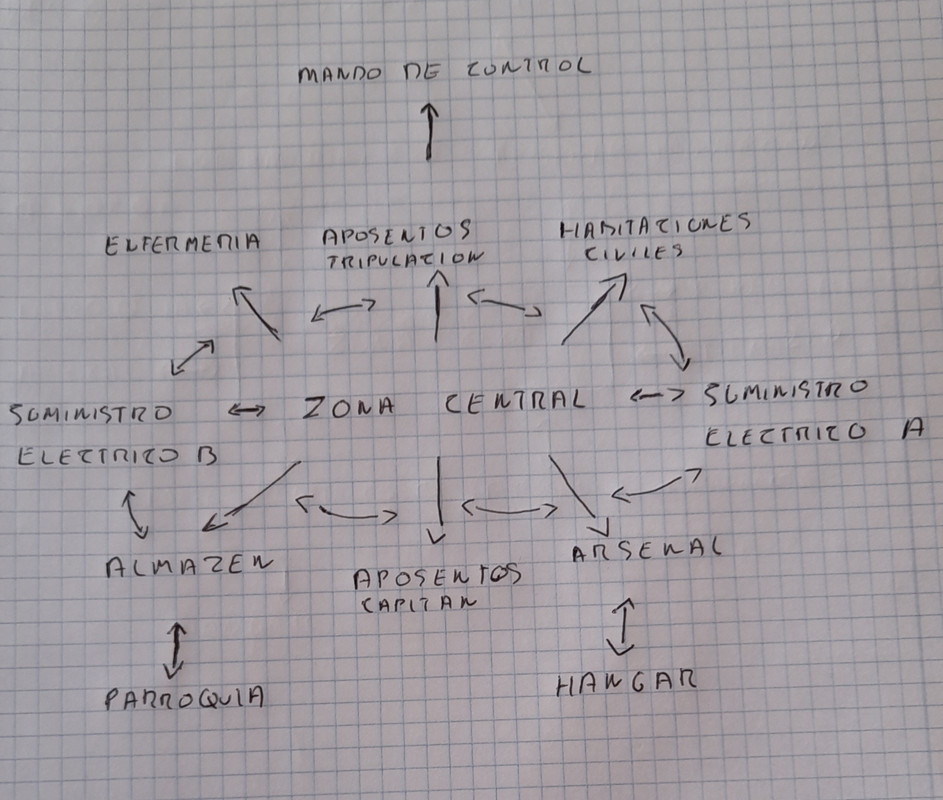 MANDO DE CONTROL
ENFERMERIA
APOSENTOS
TRIPULACION
HABITACIONES
CIVILES
SUMINISTRO
ELECTRICO B
ZONA CENTRAL
SUMINISTRO
ELECTRICO A
ALMAZEN
APOSENTOS
CAPITAN
ARSENAL
PARROQUIA
HANGAR